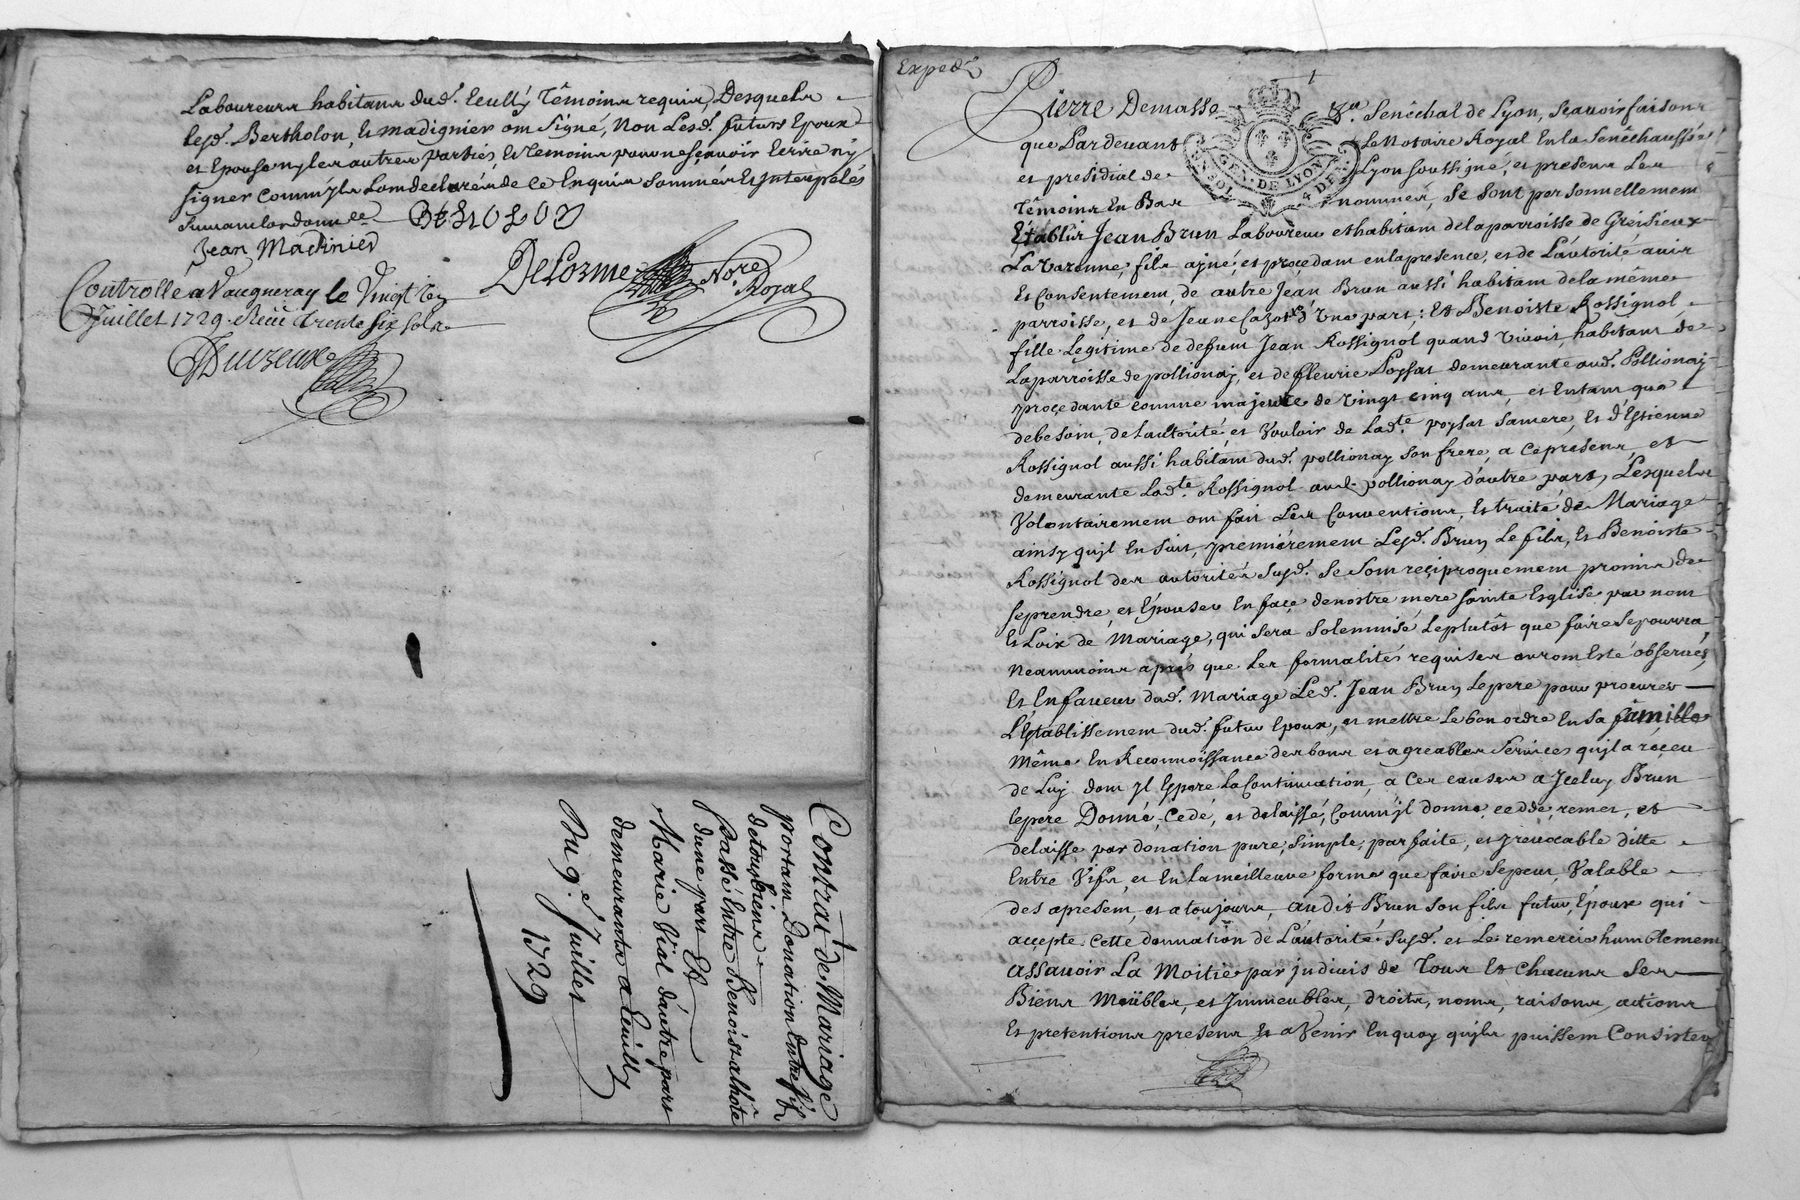 Laboureurs habitans dud. Ecully Têmoins requis, Desquels
lesd. Bertholon, Et madignier ont Signé, Non Lesd. futurs Epoux
et Epouse ny les autres parties, Et Temoins pour ne sçavoir Ecrire ny
signer comm'jls L'ont declarés de ce Enquis sommés Et Interpelés
Suivant Lordonnce
BERTOLON
Jean Madinier
Delorme Nore Royal
Controllé a Vaugneray le Vingt
Juillet 1729. Reçu trente six sols
Contrat de Mariage
portant Donation Entre Vifs
de tous biens
passé Entre Benoist alhôte
d'une part Et
Marie Vial d'autre part
demeurants a Ecully
Du 9e Juillet
1729
Exped.
1
Pierre Demasso Senêchal de Lyon, Scavoir faisons
que Pardevant Le Notaire Royal En la Senêchaussée
et presidial de Lyon soussigné, et presens Les
Têmoins En Bas nommés, Se Sont personnellement
Établis Jean Brun Laboureur et habitant de la parroisse de Gresieux
La Varenne, fils ajné, et proçedant en la presence, et de L'autorité avis
Et Consentement, de autre Jean Brun aussi habitant de la même
parroisse, et de Jeanne d'Une part; Et Benoiste Rossignol
fille Legitime de defunt Jean Rossignol quand Vivoit, habitant de
La parroisse de pollionaj, et de fleurie Poyssat demeurante aud. Pollionaj
proçedante comme majeure de Vingt cinq ans, et Entant que
de besoin, de L'autorité, et Vouloir de Ladte. poyssat sa mere, Et d'Estienne
Rossignol aussi habitant dud. pollionay son frere, a ce presens, et
demeurante Ladte. Rossignol aud. pollionay d'autre part, Lesquels
Volontairement ont fait Les Conventions, Et traité de Mariage
ainsy qujl En Suit, premiérement Lesd. Brun Le fils, Et Benoiste
Rossignol des autorités Susd. Se Sont reçiproquement promis de
se prendre, et Épouser En façe de nostre mere Sainte Esglise par nom
Et Loix de Mariage, qui sera Solemnisé Le plutôt que faire Se pourra,
Neanmoins aprés que Les formalités requises auront Esté observées,
Et En faveur dud. Mariage Led. Jean Brun Le pere pour procurer
L'Êtablissement dud. futur Epoux, et mettre Le bon ordre En Sa famille
Même En Reconnoissance des bons et agreables Services qujl a reçeu
de Luy dont jl Espere La Continuation, a Ces causes a Jceluy Brun
le pere Donné, Cedé, et delaissé, Comm'jl donne, cedde, remet, et
delaisse par donation pure, Simple, parfaite, et jrrevocable ditte
Entre Vifs, et En La meilleure forme que faire Se peut, Valable
des apresent, et a toujours, audit Brun Son fils futur, Epoux qui
accepte Cette donnation de L'autorité Susd. et Le remercie humblement
assavoir La Moitié par jndivis de Tous Et Chacuns Ses
Biens Meübles, et Jmmeubles, droits, noms, raisons, actions
Et pretentions presens Et a Venir En quoy qujls puissent Consister